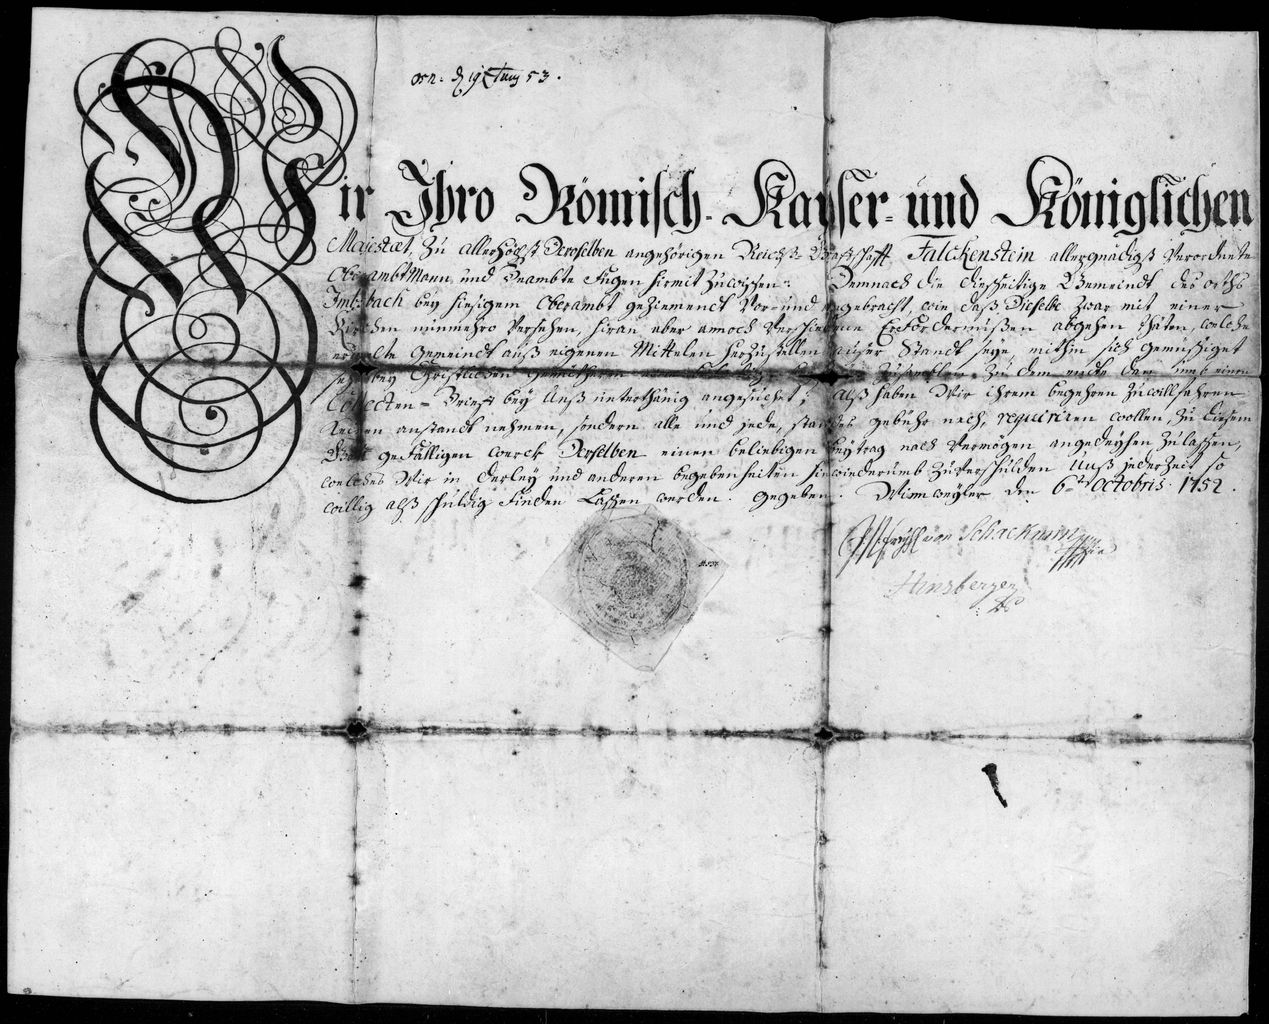 d 19 Juny 53.
Wir Ihro Römisch- Kayser- und Königlichen
Majestæt, zu allerhöchst Deroselben angehörigen Reichs Graffschafft Falckenstein allergnädigst Verordnete
OberambtMann und Beambte Fügen hirmit zuwissen: Demnach die diesseitige Gemeindt des orths
Imbsbach bey hiesigem Oberambt geziemendt Vor- und angebracht, wie daß Dieselbe zwar mit einer
Kirchen nunmehro Versehen, hiran aber annoch Verschiedene Erfordernußen abgehen thäten, welche
ermelte Gemeindt auß eigenen Mittelen herzustellen außer Standt seye, mithin sich gemüßiget
sehe bey Christlichen zu dem ende dan umb einen
Collecten-Brieff bey Unß unterthänig angesuchet; Alß haben Wir ihrem begehren zuwillfahren
keinen anstandt nehmen, sondern alle und jede, standes gebühr nach, requiriren wollen, zu diesem
Gott gefälligen werck Derselben einen beliebigen beytrag nach Vermögen angedeyhen zulassen,
welches Wir in derley und anderen begebenheiten hinwiederumb zuverschulden Unß jederzeit so
willig alß schuldig finden Lassen werden. Gegeben. Winnweyler den 6ten Octobris 1752.
von Schackmin
Hensberger